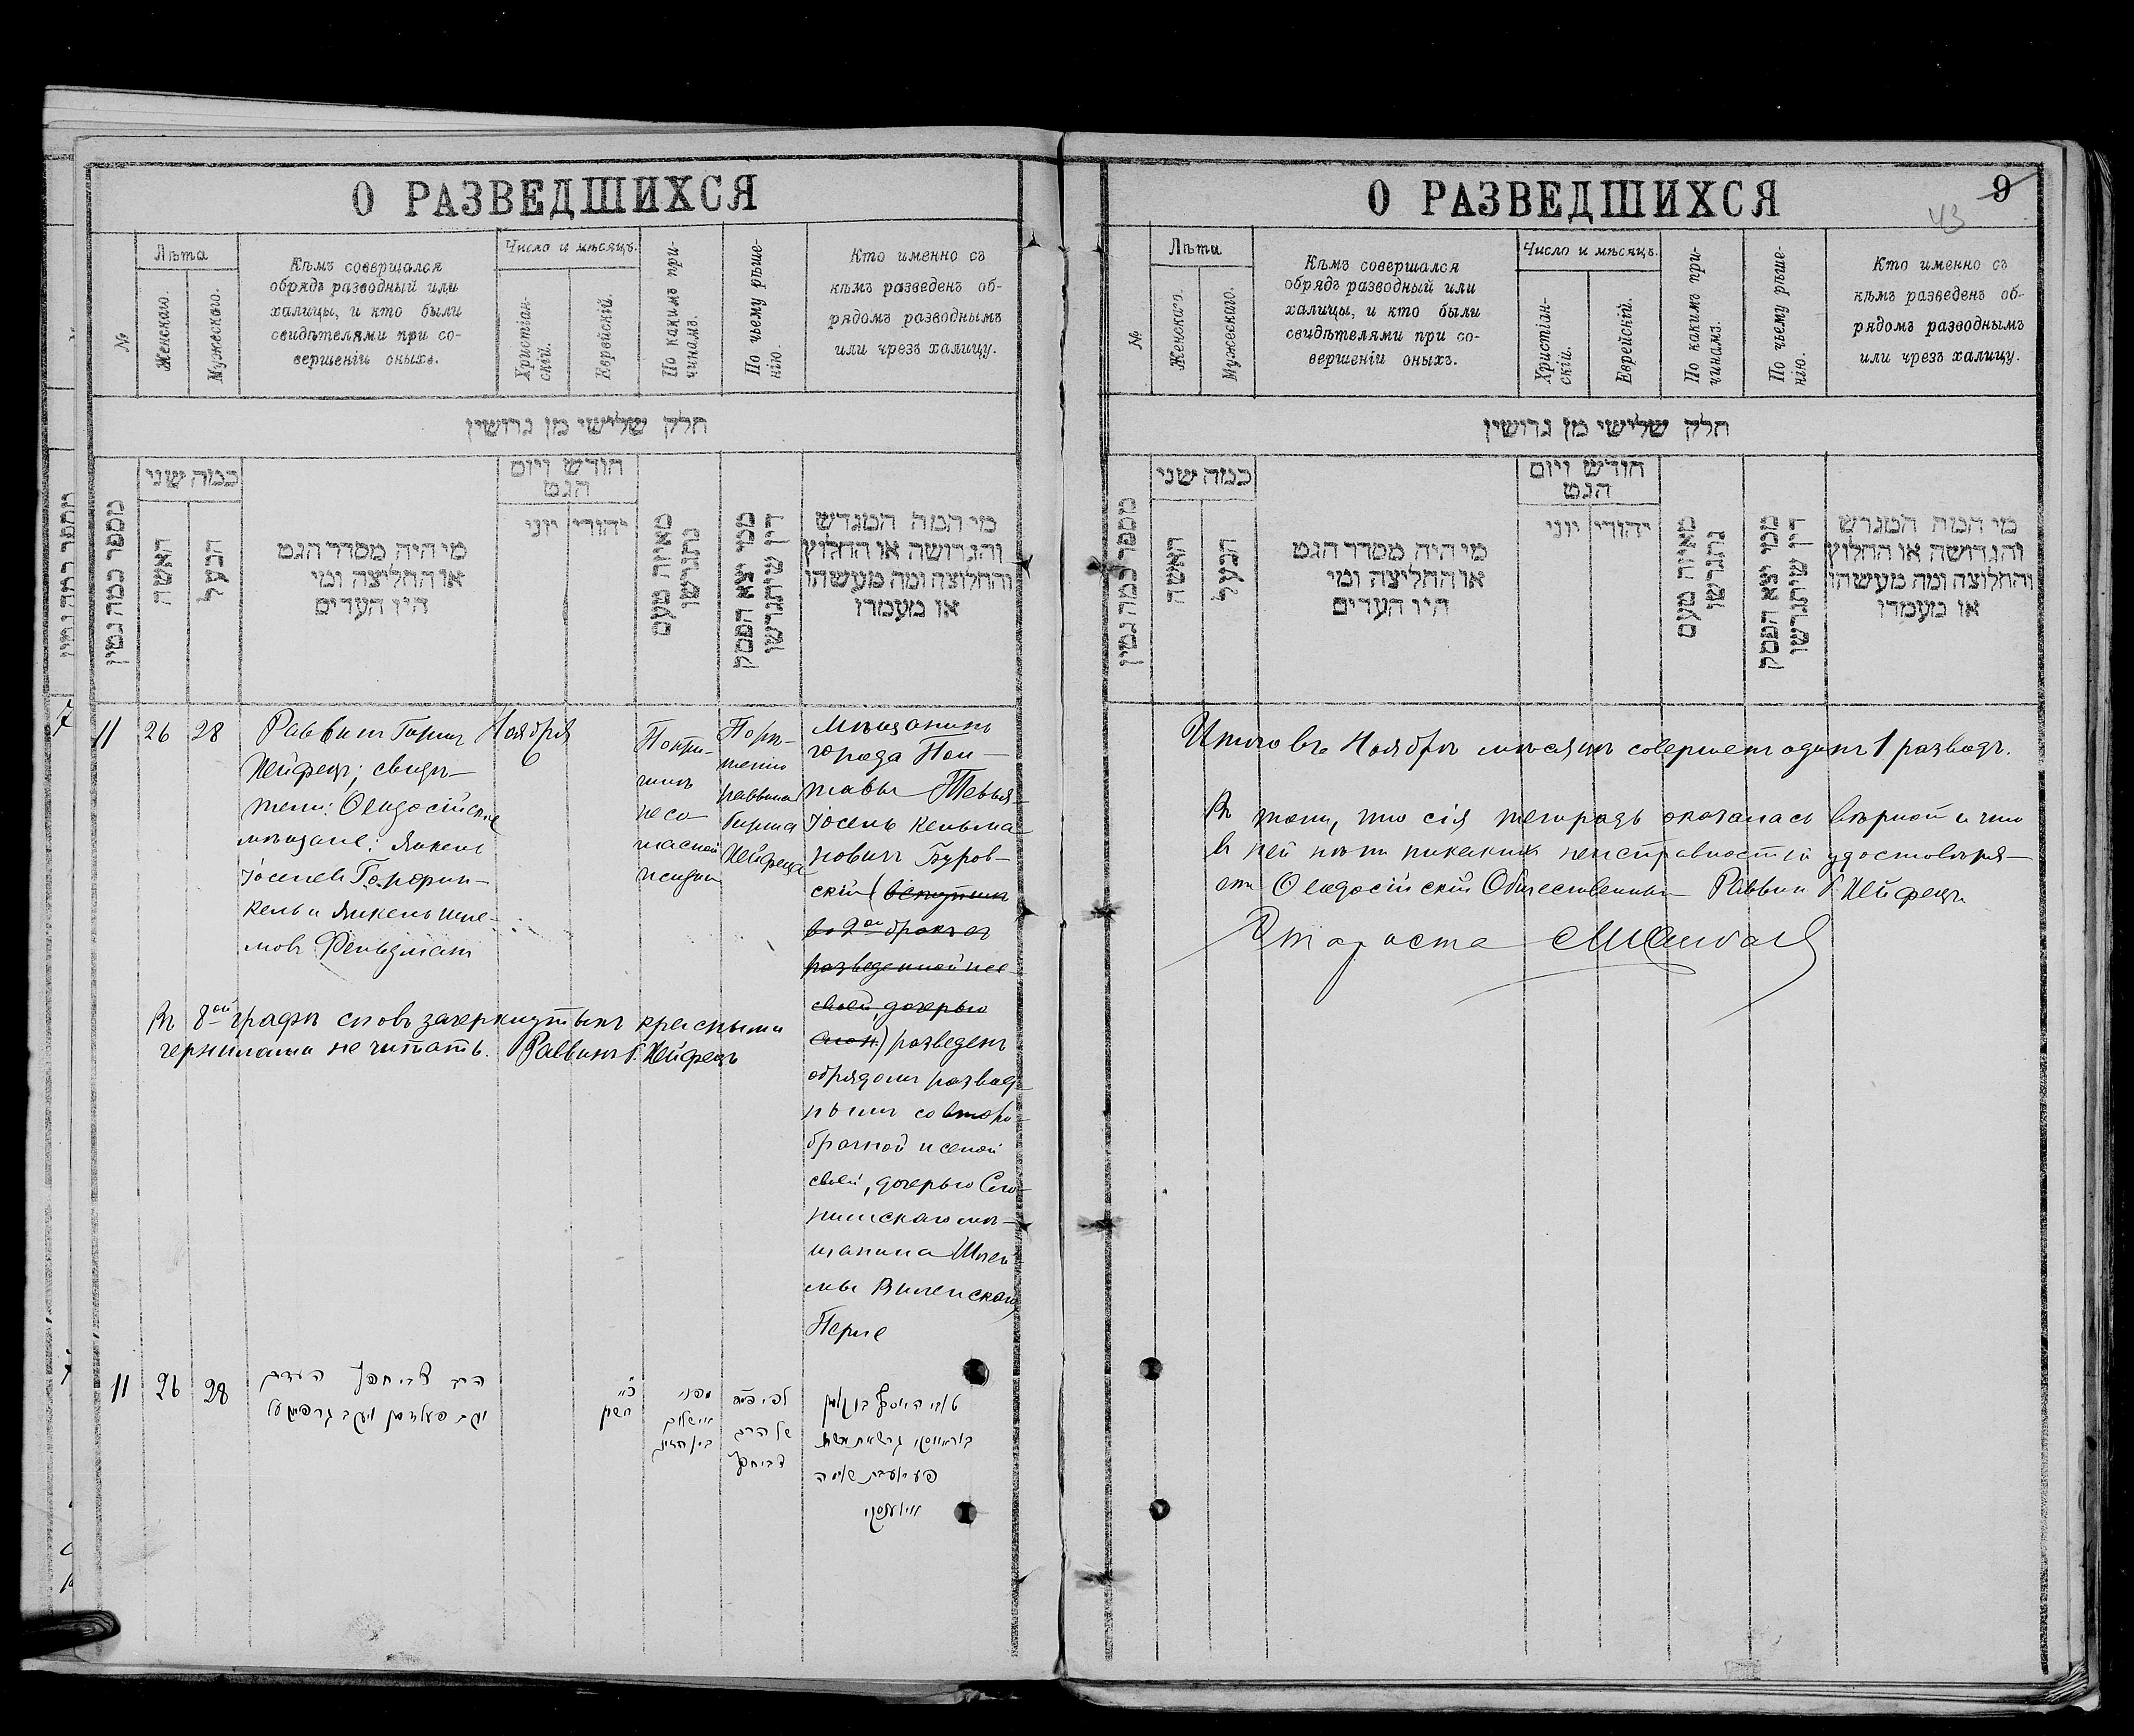 О РАЗВЕДШИХСЯ
№
Лѣта
Женскаго.
Мужескаго.
Кѣмъ совершался
обрядъ разводный или
халицы, и кто были
свидѣтелями при со-
вершеніи оныхъ.
Число и мѣсяцъ.
Христіан-
скій.
Еврейскій.
По какимъ при-
чинамъ.
По чьему рѣше-
нію.
Кто именно съ
кѣмъ разведенъ об-
рядомъ разводнымъ
или чрезъ халицу.
חלק שלישי מן גרושין
מספר כמה גטין
כמה שני
האשה
הבעל
מי היה מסדר הגט
או החליצה ומי
היו העדים
חודש ויום
הגט
יהודי
יוני
מאיזה טעם
נתגרשו
ממי יצא הפסק
דין שיתגרשו
מי המה המגרש
והגרושה או החלוץ
והחלוצה ומה מעשהו
או מעמדו
11
26
28
Раввинъ Гиршъ
Хейфецъ; свидѣ-
тели: Ѳеодосійскіе
мѣщане: Янкель
Іоселевъ Гарфин-
кель и Янкель Шле-
мовъ Фельдманъ
Ноября
6
По при-
чинѣ
несо-
гласной
жизни
По рѣ-
шенію
раввина
Гирша
Хейфеца
Мѣщанинъ
города Пол-
тавы Тевья-
Іосель Кельма-
новичъ Буров-
скій (вступилъ
во 2ой бракъ съ
разведенной же-
своей, дочерью
Слон.) разведенъ
обрядомъ развод-
нымъ со второ-
брачной женой
своей, дочерью Сло-
нимскаго мѣ-
щанина Шлей-
мы Виленскаго,
Перле
Въ 8ой графѣ словъ зачеркнутыхъ красными
чернилами не читать. Раввинъ Г. Хейфецъ
11
26
28
הרב צבי חפץ העדים
יעקב פעלדמאן ויעקב גרפינקעל
כ״ו
חשון
מפני
אי שלום
בין הזוג
לפי פסק
של הרב
צבי חפץ
טוביה יוסף בן קלמן
בוראווסקי גרש את אשתו
פערלע בת שלמה
ווילענסקי
О РАЗВЕДШИХСЯ
9
43
№
Лѣта
Женскаго.
Мужескаго.
Кѣмъ совершался
обрядъ разводный или
халицы, и кто были
свидѣтелями при со-
вершеніи оныхъ.
Число и мѣсяцъ.
Христіан-
скій.
Еврейскій.
По какимъ при-
чинамъ.
По чьему рѣше-
нію.
Кто именно съ
кѣмъ разведенъ об-
рядомъ разводнымъ
или чрезъ халицу.
חלק שלישי מן גרושין
מספר כמה גטין
כמה שני
האשה
הבעל
מי היה מסדר הגט
או החליצה ומי
היו העדים
חודש ויום
הגט
יהודי
יוני
מאיזה טעם
נתגרשו
ממי יצא הפסק
דין שיתגרשו
מי המה המגרש
והגרושה או החלוץ
והחלוצה ומה מעשהו
או מעמדו
Итого въ Ноябрѣ мѣсяцѣ совершенъ одинъ 1 разводъ.
Въ томъ, что сія тетрадь оказалась вѣрной и что
въ ней нѣтъ никакихъ неисправностей удостовѣря-
етъ Ѳеодосійскій Общественный Раввинъ Г. Хейфецъ
Староста